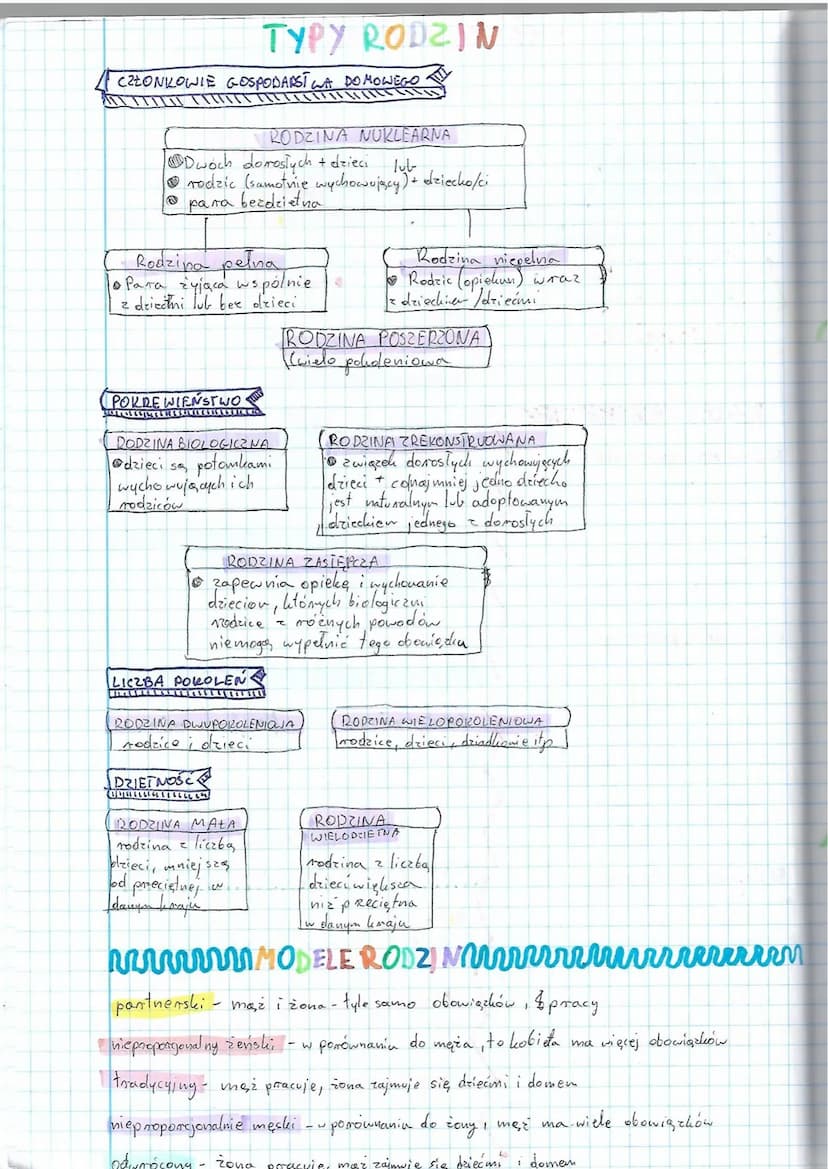 TYPY RODZIN
CZŁONKOWIE GOSPODARSTWA DOMOWEGO
RODZINA NUKLEARNA
Dwóch dorosłych + dzieci lub
rodzic (samotnie wychowujący) + dziecko/ci
para bezdzietna
Rodzina pełna
Para żyjąca wspólnie
z dziećmi lub bez dzieci
Rodzina niepełna
Rodzic (opiekun) wraz
z dzieckiem /dziećmi
RODZINA POSZERZONA
(wielo pokoleniowa
POKREWIEŃSTWO
RODZINA BIOLOGICZNA
dzieci są potomkami
wychowujących ich
rodziców
RODZINA ZREKONSTRUOWANA
związek dorosłych wychowujących
dzieci + conajmniej jedno dziecko
jest naturalnym lub adoptowanym
dzieckiem jednego z dorosłych
RODZINA ZASTĘPCZA
zapewnia opiekę i wychowanie
dzieciom, których biologiczni
rodzice z różnych powodów
niemogą wypełnić tego obowiązku
LICZBA POKOLEŃ
RODZINA DWUPOKOLENIOWA
rodzice i dzieci
RODZINA WIELOPOKOLENIOWA
rodzice, dzieci, dziadkowie itp
DZIETNOŚĆ
RODZINA MAŁA
rodzina z liczbą
dzieci, mniejszą
od przeciętnej w
danym kraju
RODZINA
WIELODZIETNA
rodzina z liczbą
dzieci większa
niż przeciętna
w danym kraju
MODELE RODZIN
partnerski - mąż i żona - tyle samo obowiązków, pracy
nieproporcjonalny żeński - w porównaniu do męża, to kobieta ma więcej obowiązków
tradycyjny - mąż pracuje, żona zajmuje się dziećmi i domem
nieproporcjonalnie męski - w porównaniu do żony, mąż ma wiele obowiązków
odwrócony - żona pracuje, mąż zajmuje się dziećmi i domem